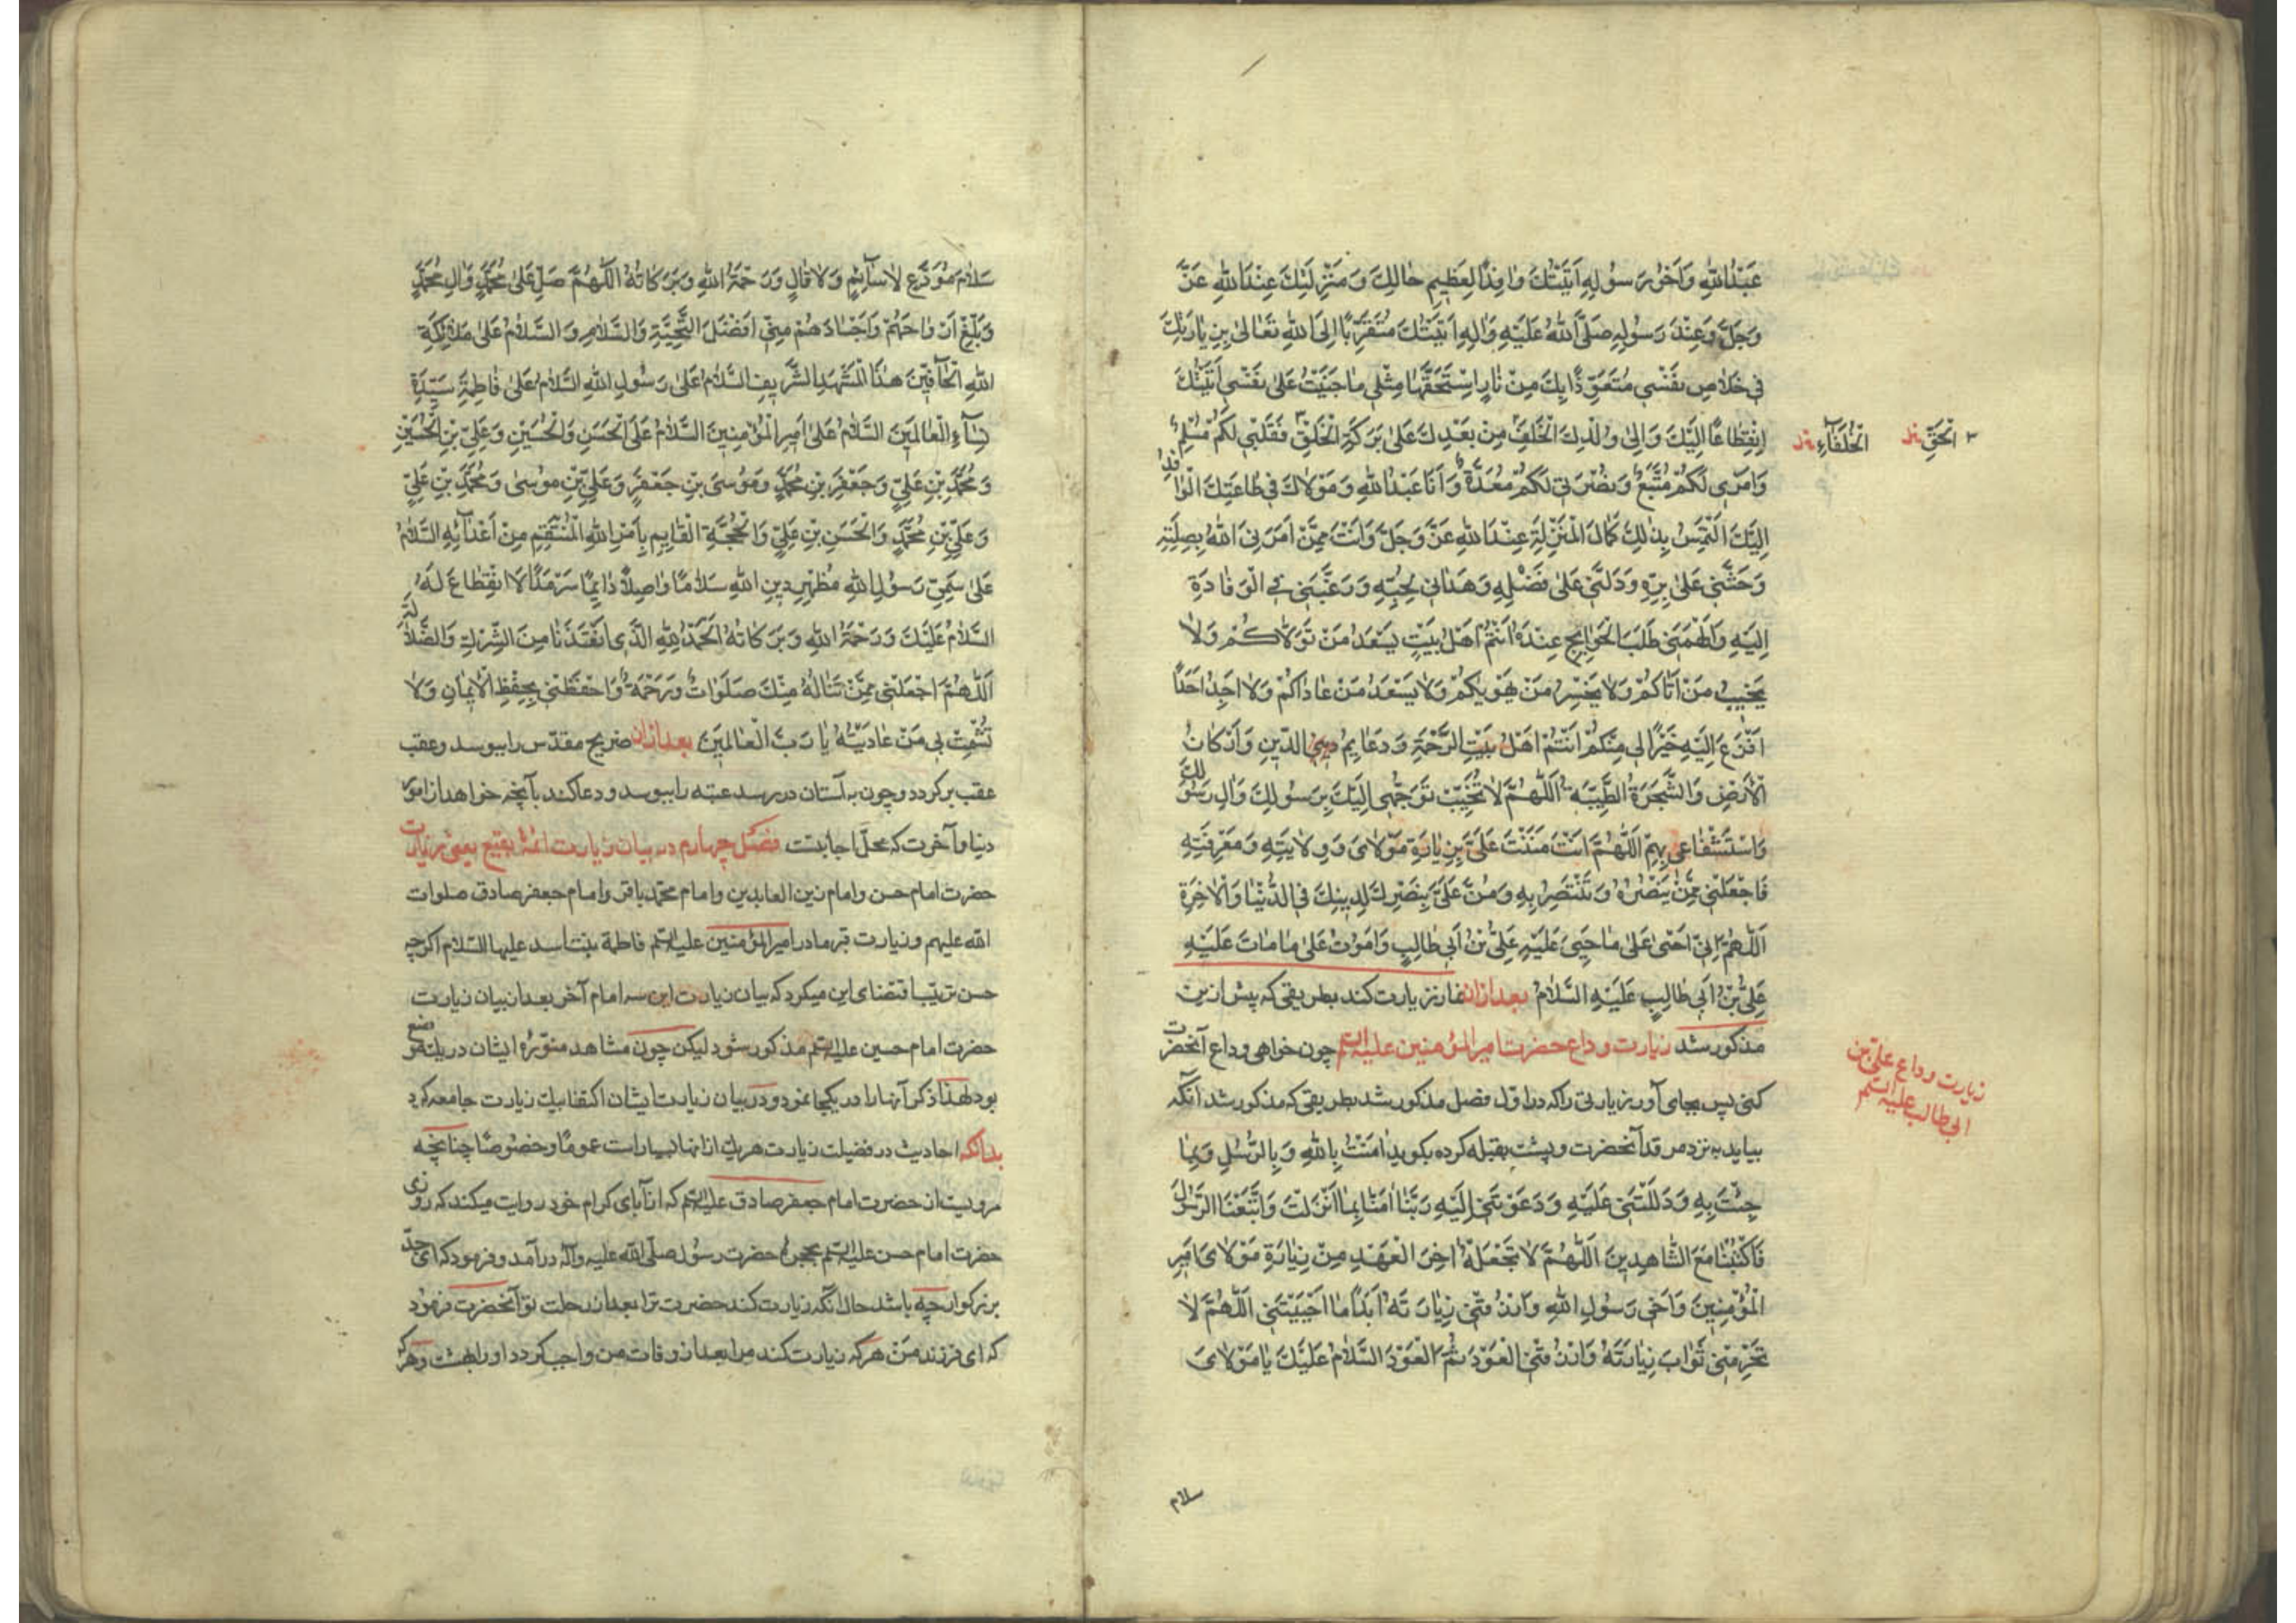 عَبْدُاللهِ وَاَخُو رَسُولِهِ اَتَيْتُكَ وَافِدًا لِعَظِيمِ حَالِكَ وَمَنْزِلَتِكَ عِنْدَاللهِ عَزَّ
وَجَلَّ وَعِنْدَ رَسُولِهِ صَلَّى اللهُ عَلَيْهِ وَالِهِ اَتَيْتُكَ مُتَقَرِّبًا اِلَى اللهِ تَعَالَى بِزِيَارَتِكَ
فِي خَلَاصِ نَفْسِي مُتَعَوِّذًا بِكَ مِنْ نَارٍ اِسْتَحَقَّهَا مِثْلِي مَا جَنَيْتُ عَلَى نَفْسِي اَتَيْتُكَ
اِنْقِطَاعًا اِلَيْكَ وَاِلَى وُلْدِكَ الْخَلَفِ مِنْ بَعْدِكَ عَلَى بَرَكَةِ الْخَلْقِ ٣ فَقَلْبِي لَكُمْ مُسْلِمٌ
٣ الْحَقِّ
الْخُلَفَاءِ
وَاَمْرِي لَكُمْ مُتَّبَعٌ وَنُصْرَتِي لَكُمْ مُعَدَّةٌ وَاَنَا عَبْدُاللهِ وَمَوْلَاكَ فِي طَاعَتِكَ الْوَافِدُ
اِلَيْكَ اَلْتَمِسُ بِذٰلِكَ كَمَالَ الْمَنْزِلَةِ عِنْدَاللهِ عَزَّ وَجَلَّ وَاَنْتَ مِمَّنْ اَمَرَنِيَ اللهُ بِصِلَتِهِ
وَحَثَّنِي عَلَى بِرِّهِ وَدَلَّنِي عَلَى فَضْلِهِ وَهَدَانِي لِحُبِّهِ وَرَغَّبَنِي فِي الْوِفَادَةِ
اِلَيْهِ وَاَلْهَمَنِي طَلَبَ الْحَوَايِجِ عِنْدَهُ اَنْتُمْ اَهْلُ بَيْتٍ يَسْعَدُ مَنْ تَوَلَّاكُمْ وَلَا
يَخِيبُ مَنْ اَتَاكُمْ وَلَا يَخْسِرُ مَنْ هَوِيكُمْ وَلَا يَسْعَدُ مَنْ عَادَاكُمْ وَلَا اَجِدُ اَحَدًا
اَفْزَعُ اِلَيْهِ خَيْرًا لِي مِنْكُمْ اَنْتُمْ اَهْلُ بَيْتِ الرَّحْمَةِ وَدَعَايِمُ الدِّينِ وَاَرْكَانُ
الْاَرْضِ وَالشَّجَرَةُ الطَّيِّبَةُ اَللّٰهُمَّ لَا تُخَيِّبْ تَوَجُّهِي اِلَيْكَ بِرَسُولِكَ وَالِ رَسُولِكَ
وَاسْتِشْفَاعِي بِهِمْ اَللّٰهُمَّ اَنْتَ مَنَنْتَ عَلَيَّ بِزِيَارَةِ مَوْلَايَ وَوِلَايَتِهِ وَمَعْرِفَتِهِ
فَاجْعَلْنِي مِمَّنْ يَنْصُرُهُ وَتَنْتَصِرُ بِهِ وَمُنَّ عَلَيَّ بِنَصْرِكَ لِدِينِكَ فِي الدُّنْيَا وَالْاٰخِرَةِ
اَللّٰهُمَّ اِنِّي اَحْيٰى عَلَى مَا حَيِيَ عَلَيْهِ عَلِيُّ بْنُ اَبِي طَالِبٍ وَاَمُوتُ عَلَى مَا مَاتَ عَلَيْهِ
عَلِيُّ بْنُ اَبِي طَالِبٍ عَلَيْهِ السَّلَامُ بعد ازان نماز زيارت كند بطريقى كه پيش ازين
مذكور شد زيارت وداع حضرت امير المؤمنين عليه السلم چون خواهى وداع آنحضرت
زيارت وداع على بن
ابى طالب عليه السلم
كنى پس بجاى آور زيارتى راكه در اول فصل مذكور شد بطريقى كه مذكور شد آنگه
بيايد به نزد مرقد آنحضرت و پشت بقبله كرده بگويد اٰمَنْتُ بِاللهِ وَبِالرُّسُلِ وَبِمَا
جِئْتَ بِهِ وَدَلَلْتَنِي عَلَيْهِ وَدَعَوْتَنِي اِلَيْهِ رَبَّنَا اٰمَنَّا بِمَا اَنْزَلْتَ وَاتَّبَعْنَا الرَّسُولَ
فَاكْتُبْنَا مَعَ الشَّاهِدِينَ اَللّٰهُمَّ لَا تَجْعَلْهُ اٰخِرَ الْعَهْدِ مِنْ زِيَارَةِ مَوْلَايَ اَمِيرِ
الْمُؤْمِنِينَ وَاَخِي رَسُولِ اللهِ وَارْزُقْنِي زِيَارَتَهُ اَبَدًا مَا اَحْيَيْتَنِي اَللّٰهُمَّ لَا
تَحْرِمْنِي ثَوَابَ زِيَارَتِهِ وَارْزُقْنِي الْعَوْدَ ثُمَّ الْعَوْدَ السَّلَامُ عَلَيْكَ يَا مَوْلَايَ
سلام
سَلَامَ مُوَدِّعٍ لَا سَائِمٍ وَلَا قَالٍ وَرَحْمَةُ اللهِ وَبَرَكَاتُهُ اَللّٰهُمَّ صَلِّ عَلَى مُحَمَّدٍ وَالِ مُحَمَّدٍ
وَبَلِّغْ اَرْوَاحَهُمْ وَاَجْسَادَهُمْ مِنِّي اَفْضَلَ التَّحِيَّةِ وَالسَّلَامِ وَالسَّلَامُ عَلَى مَلَائِكَةِ
اللهِ الْحَافِّينَ هٰذَا الْمَشْهَدِ الشَّرِيفِ السَّلَامُ عَلَى رَسُولِ اللهِ السَّلَامُ عَلَى فَاطِمَةَ سَيِّدَةِ
نِسَاءِ الْعَالَمِينَ السَّلَامُ عَلَى اَمِيرِ الْمُؤْمِنِينَ السَّلَامُ عَلَى الْحَسَنِ وَالْحُسَيْنِ وَعَلِيِّ بْنِ الْحُسَيْنِ
وَمُحَمَّدِ بْنِ عَلِيٍّ وَجَعْفَرِ بْنِ مُحَمَّدٍ وَمُوسَى بْنِ جَعْفَرٍ وَعَلِيِّ بْنِ مُوسٰى وَمُحَمَّدِ بْنِ عَلِيٍّ
وَعَلِيِّ بْنِ مُحَمَّدٍ وَالْحَسَنِ بْنِ عَلِيٍّ وَالْحُجَّةِ الْقَايِمِ بِاَمْرِ اللهِ الْمُنْتَقِمِ مِنْ اَعْدَائِهِ السَّلَامُ
عَلَى سَمِيِّ رَسُولِ اللهِ مُظْهِرِ دِينِ اللهِ سَلَامًا وَاصِلًا دَايِمًا سَرْمَدًا لَا انْقِطَاعَ لَهُ
السَّلَامُ عَلَيْكَ وَرَحْمَةُ اللهِ وَبَرَكَاتُهُ اَلْحَمْدُ لِلّٰهِ الَّذِي اَنْقَذَنَا مِنَ الشِّرْكِ وَالضَّلَالَةِ
اَللّٰهُمَّ اجْعَلْنِي مِمَّنْ تَنَالُهُ مِنْكَ صَلَوَاتٌ وَرَحْمَةٌ وَاحْفَظْنِي بِحِفْظِ الْاِيمَانِ وَلَا
تُشْمِتْ بِي مَنْ عَادَيْتُهُ يَا رَبَّ الْعَالَمِينَ بعد ازان ضريح مقدس را ببوسد و عقب
عقب برگردد و چون به آستان در رسد عتبه را ببوسد و دعا كند بآنچه خواهد از امور
دنيا و آخرت كه محل اجابتست فصل چهارم در بيان زيارت ائمهٔ بقيع يعنى زيارت
حضرت امام حسن و امام زين العابدين و امام محمد باقر و امام جعفر صادق صلوات
الله عليهم و زيارت قبر مادر امير المؤمنين عليه السلم فاطمة بنت اسد عليها السلام اگرچه
حسن ترتيب اقتضاى اين ميكرد كه بيان زيارت اين سه امام آخر بعد از بيان زيارت
حضرت امام حسين عليه السلم مذكور شود ليكن چون مشاهد منوّرهٔ ايشان در يك موضع
بود لهذا ذكر آنها را در يكجا نمود و در بيان زيارت ايشان اكتفا بيك زيارت جامعه كرد
بدانكه احاديث در فضيلت زيارت هر يك از انها بسيار است عموما و خصوصا چنانچه
مرويست از حضرت امام جعفر صادق عليه السلم كه از آباى كرام خود روايت ميكند كه روزى
حضرت امام حسن عليه السلم بحجرهٔ حضرت رسول صلّى الله عليه وآله در آمد و فرمود كه اى جدّ
بزرگوار چه باشد حال انكه زيارت كند حضرت ترا بعد از رحلت تو آنحضرت فرمود
كه اى فرزند من هركه زيارت كند مرا بعد از وفات من واجب گردد او را بهشت و هركه